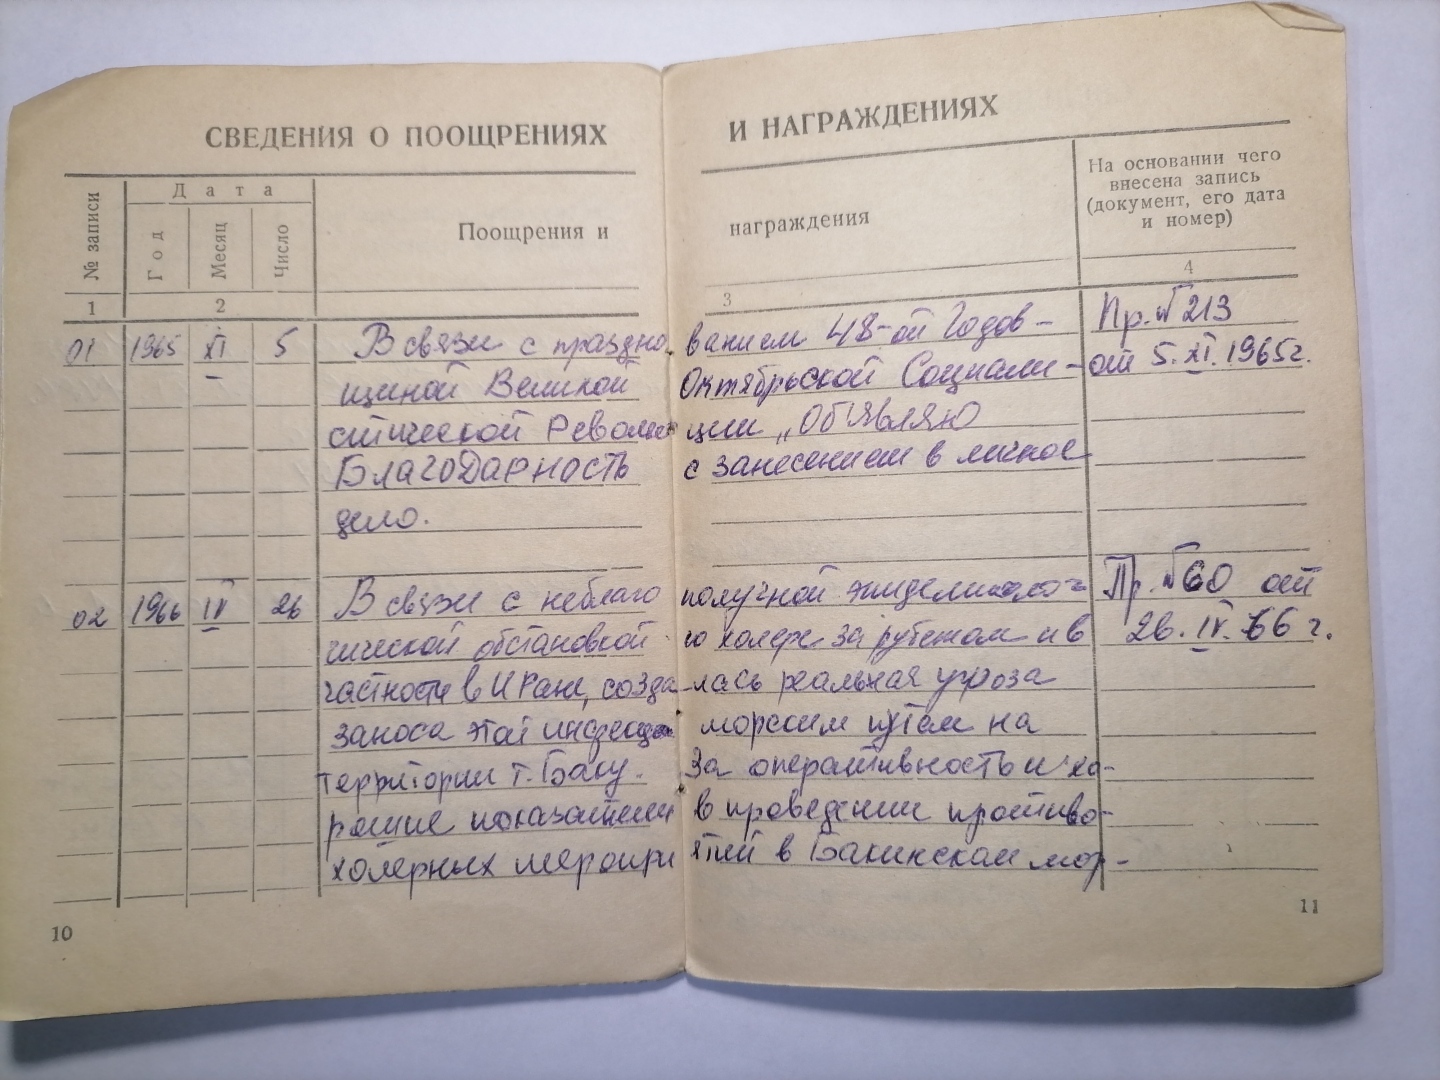 СВЕДЕНИЯ О ПООЩРЕНИЯХ И НАГРАЖДЕНИЯХ
№ записи
Дата
Год
Месяц
Число
Поощрения и награждения
На основании чего
внесена запись
(документ, его дата
и номер)
1 2 3 4
01 1965 XI 5 В связи с праздно ванием 48-ой Годов- Пр. №213
щиной Великой Октябрьской Социали- от 5.XI.1965г.
стической Револю ции „Объявляю
Благодарность с занесением в личное
дело.
02 1966 IV 26 В связи с неблаго получной эпидемиоло- Пр. №60 от
гической обстановкой по холере за рубежом и в 26.IV.66 г.
частности в Иране, созда лась реальная угроза
заноса этой инфекции морским путем на
территории г. Баку. За оперативность и хо-
рошие показатели в проведении противо-
холерных меропри ятий в Бакинском мор-
10
11